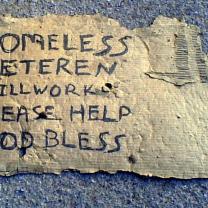 OMELESS
ETEREN
ILLWORK
EASE HELP
OD BLESS